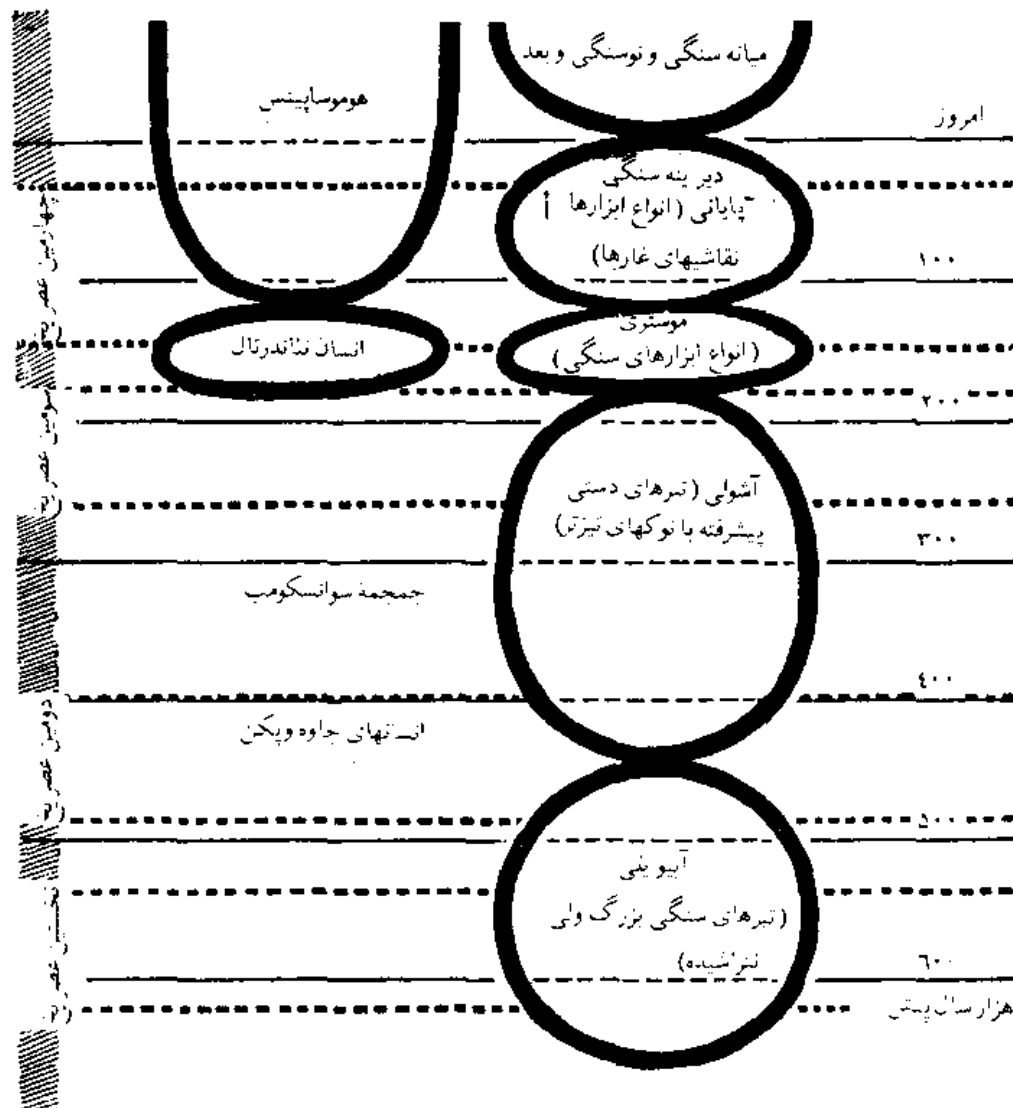 میانه سنگی و نوسنگی و بعد
هوموساپینس
امروز
دیرینه سنگی
پایانی (انواع ابزارها
نقاشیهای غارها)
۱۰۰
موستری
(انواع ابزارهای سنگی)
انسان نئاندرتال
۲۰۰
آشولی (تبرهای دستی
پیشرفته با نوکهای تیزتر)
۳۰۰
جمجمهٔ سوانسکومب
۴۰۰
انسانهای جاوه وپکن
۵۰۰
آبیویلی
(تبرهای سنگی بزرگ ولی
نتراشیده)
۶۰۰
هزار سال پیش
چهارمین عصر یخ
سومین عصر یخ
دومین عصر یخ
نخستین عصر یخ